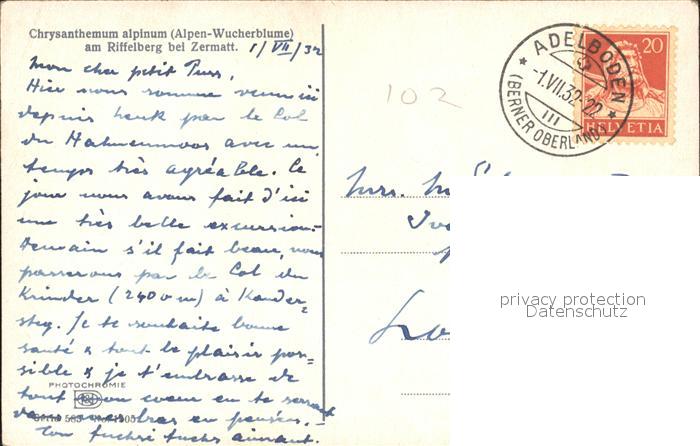 Chrysanthemum alpinum (Alpen-Wucherblume)
am Riffelberg bei Zermatt.
1/VII/32
Mon cher petit Puss,
Hier nous somme venu ici
depuis Lenk par le Col
du Hahnenmoos avec un
temps très agréable. Ce
jour nous avons fait d'ici
une très belle excursion.
Demain s'il fait beau, nous
passerons par le Col du
(2400 m) à Kander=
steg. Je te souhaite bonne
santé & tout le plaisir pos=
sible & je t'embrasse de
tout mon coeur en te serrant
dans mes bras en pensées.
Ton aimant.
PHOTOCHROMIE
Serie 585
ADELBODEN
-1.VII.32-22
III
(BERNER OBERLAND)
20
HELVETIA
102
Mrs.
Lo
privacy protection
Datenschutz